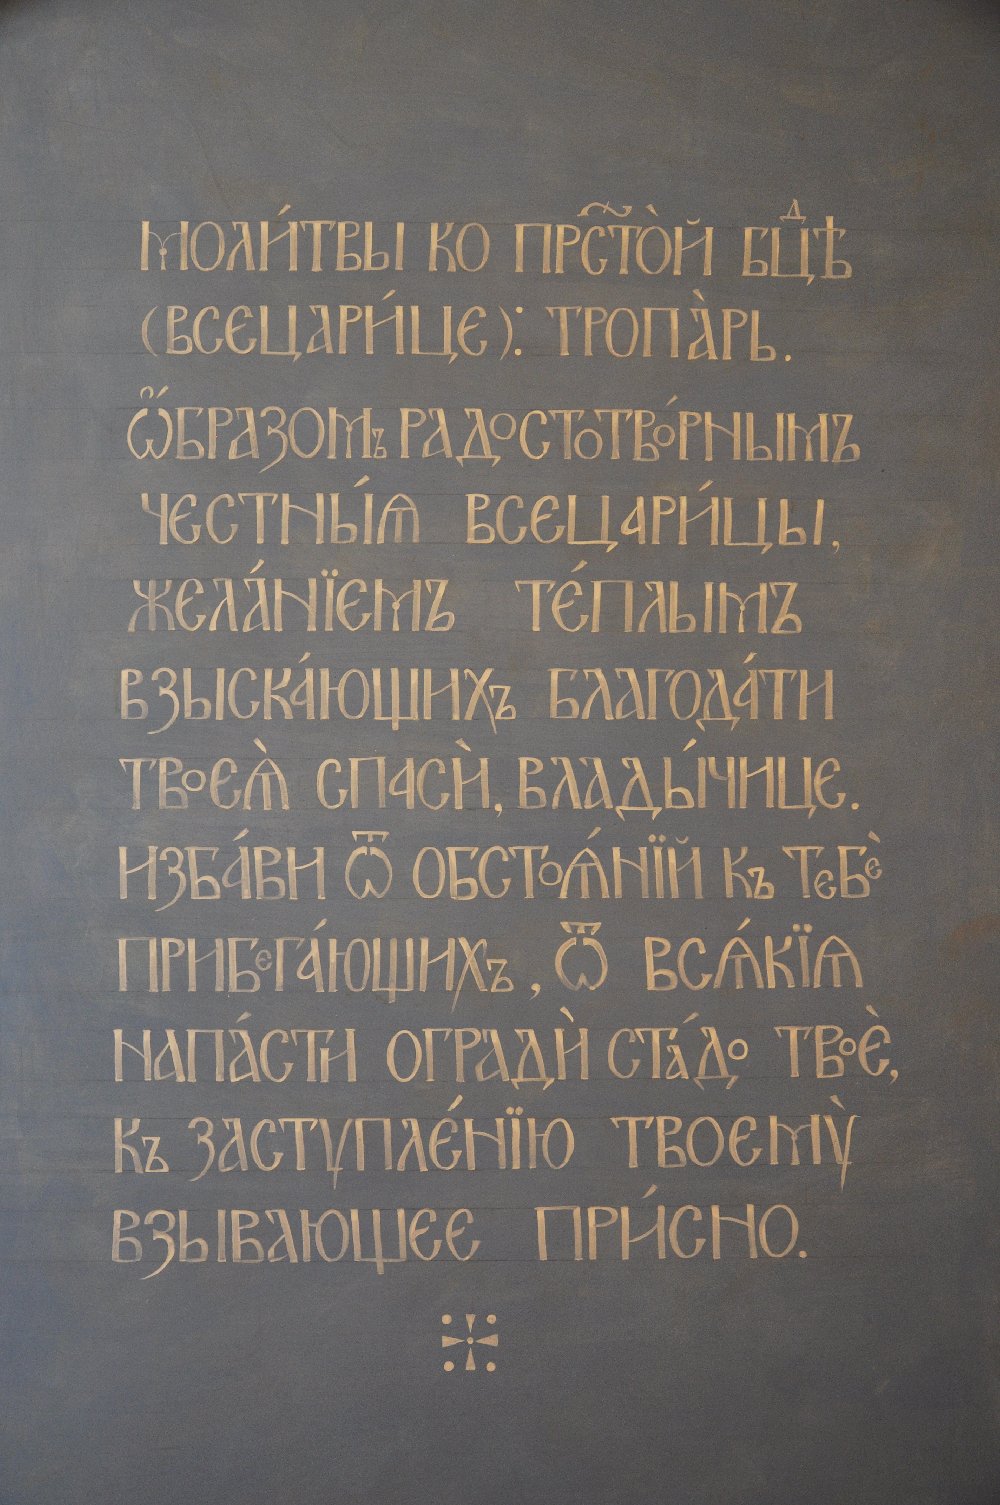 Моли́твы ко прⷭ҇то̀й бцⷣѣ
(всецари́це): тропа̀рь.
Ѡ҆́бразомъ радостотво́рнымъ
честны́ѧ всецари́цы,
жела́нїемъ те́плымъ
взыска́ющихъ благода́ти
твоеѧ̀ спасѝ, влады́чице.
Изба́ви ѿ обстоѧ́нїй къ тебѐ
прибега́ющихъ, ѿ всѧ́кїѧ
напа́сти оградѝ ста́до твоѐ,
къ заступле́нїю твоемꙋ̀
взывающее при́сно.